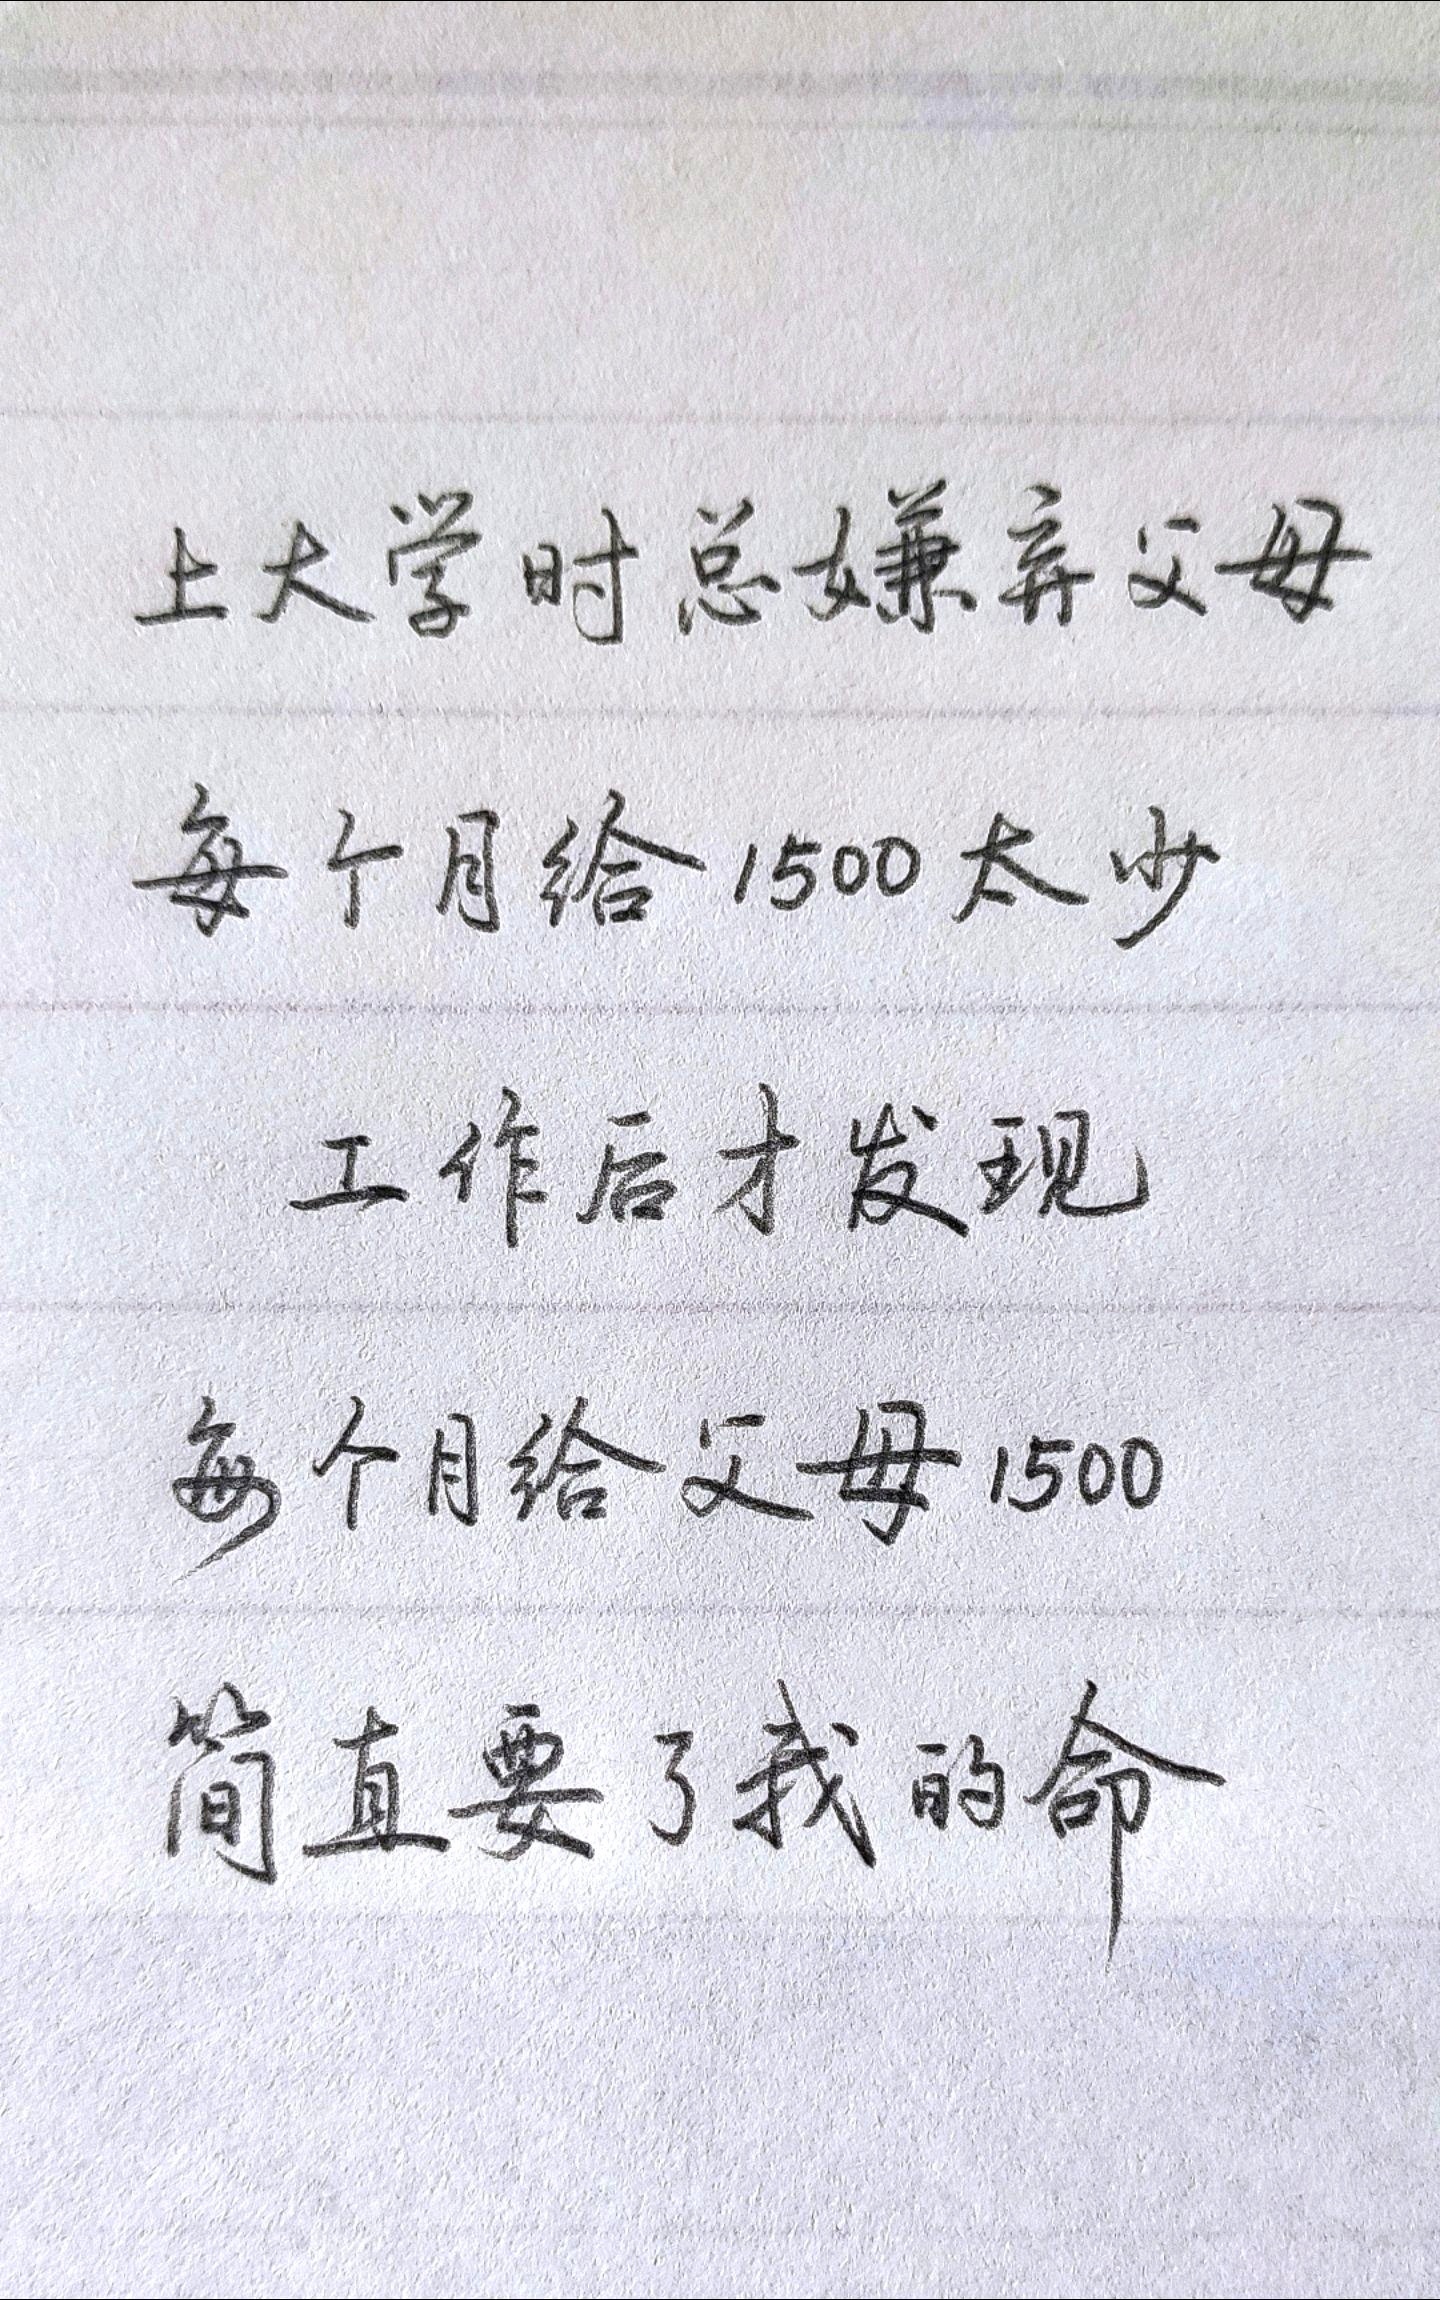 上大学时总嫌弃父母
每个月给1500太少
工作后才发现
每个月给父母1500
简直要了我的命